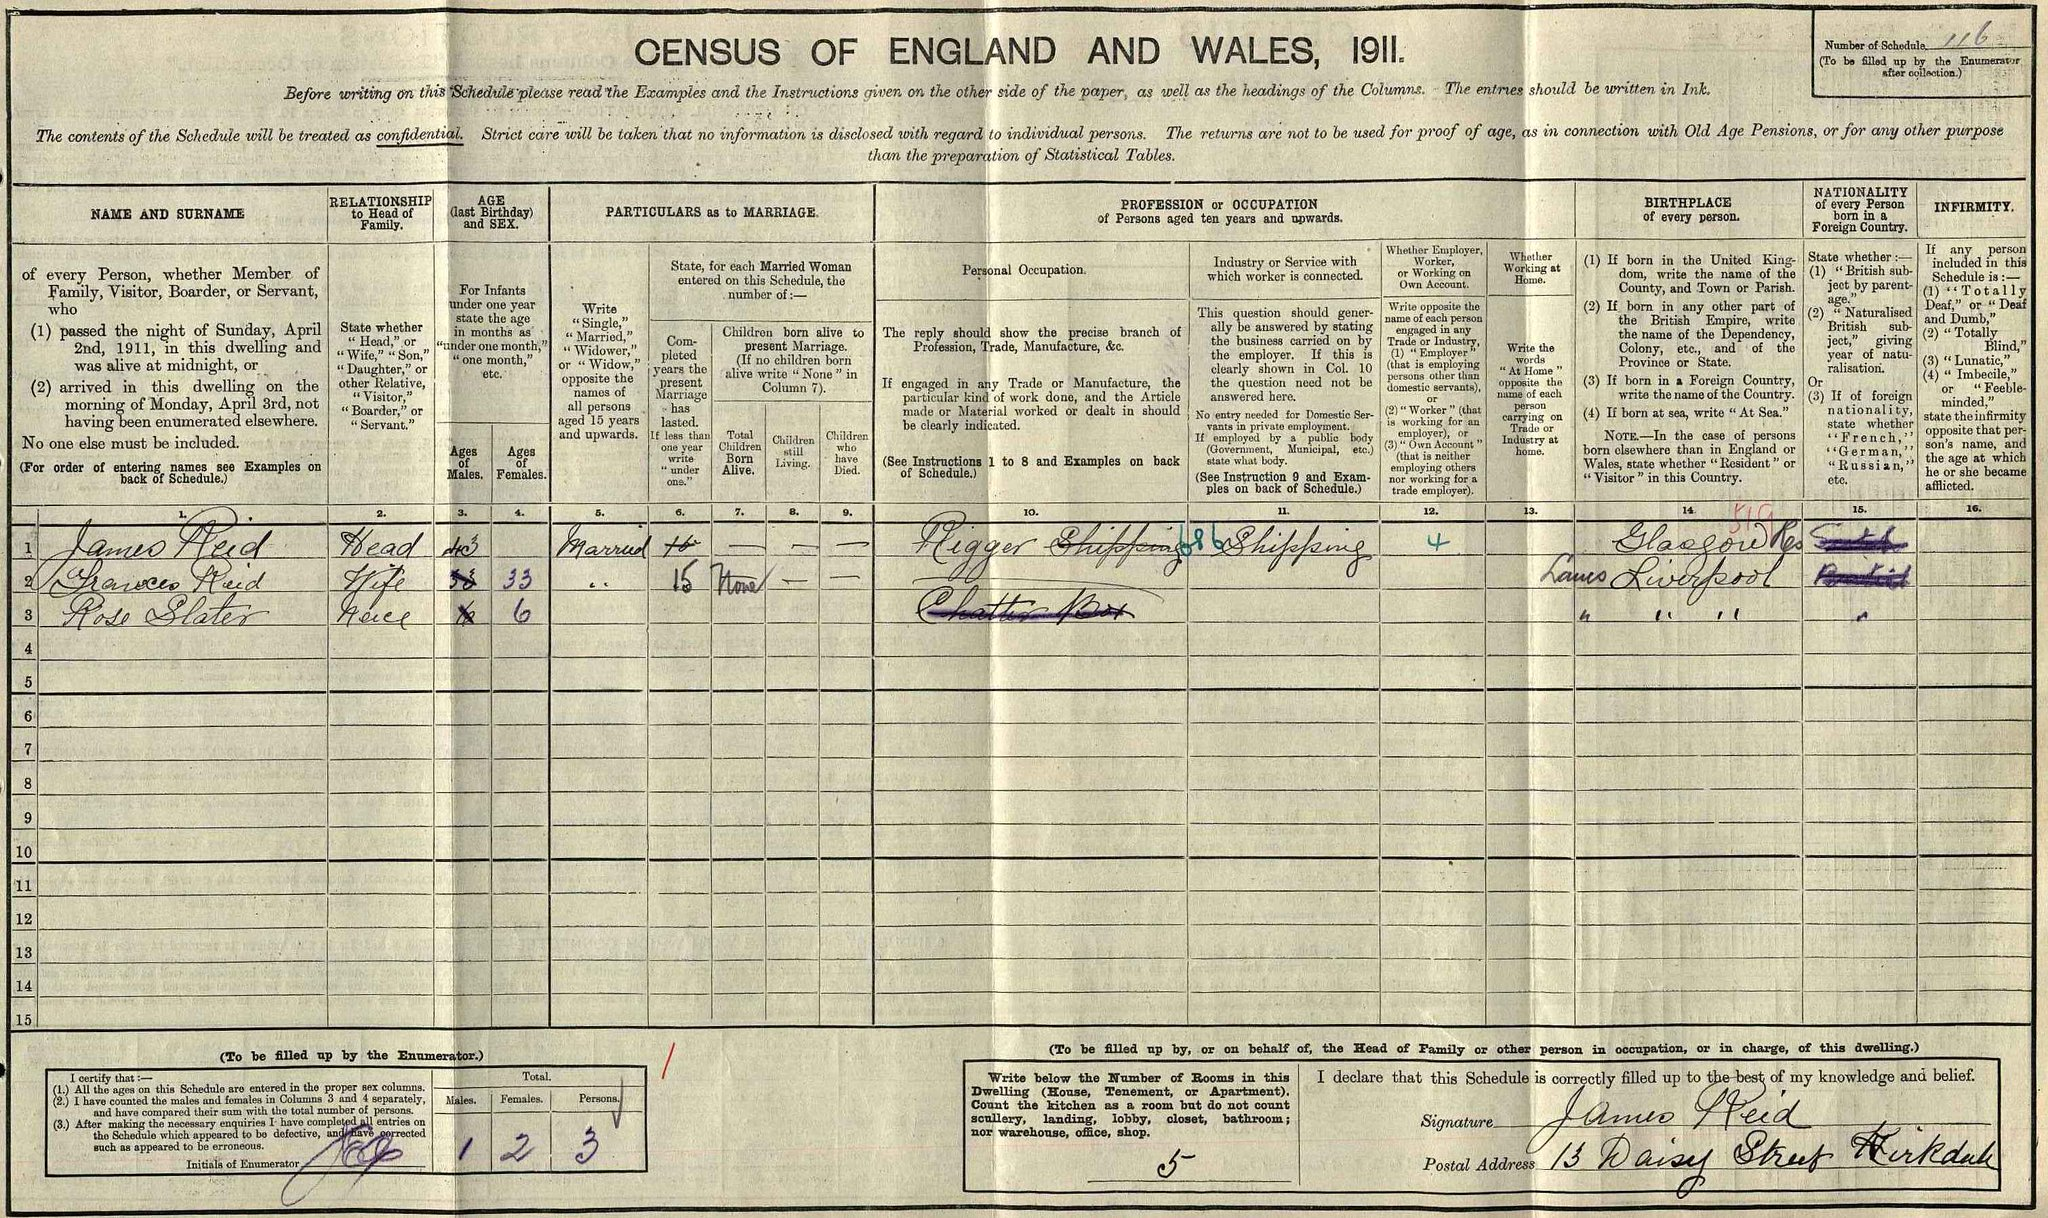 CENSUS OF ENGLAND AND WALES, 1911.
Number of Schedule 116
(To be filled up by the Enumerator
after collection.)
Before writing on this Schedule please read the Examples and the Instructions given on the other side of the paper, as well as the headings of the Columns. The entries should be written in Ink.
The contents of the Schedule will be treated as confidential. Strict care will be taken that no information is disclosed with regard to individual persons. The returns are not to be used for proof of age, as in connection with Old Age Pensions, or for any other purpose
than the preparation of Statistical Tables.
NAME AND SURNAME
of every Person, whether Member of
Family, Visitor, Boarder, or Servant,
who
(1) passed the night of Sunday, April
2nd, 1911, in this dwelling and
was alive at midnight, or
(2) arrived in this dwelling on the
morning of Monday, April 3rd, not
having been enumerated elsewhere.
No one else must be included.
(For order of entering names see Examples on
back of Schedule.)
RELATIONSHIP
to Head of
Family.
State whether
"Head," or
"Wife," "Son,"
"Daughter," or
other Relative,
"Visitor,"
"Boarder," or
"Servant."
AGE
(last Birthday)
and SEX.
For Infants
under one year
state the age
in months as
"under one month,"
"one month,"
etc.
Ages
of
Males.
Ages
of
Females.
PARTICULARS as to MARRIAGE.
Write
"Single,"
"Married,"
"Widower,"
or "Widow,"
opposite the
names of
all persons
aged 15 years
and upwards.
State, for each Married Woman
entered on this Schedule, the
number of:—
Com-
pleted
years the
present
Marriage
has
lasted.
If less than
one year
write
"under
one."
Children born alive to
present Marriage.
(If no children born
alive write "None" in
Column 7).
Total
Children
Born
Alive.
Children
still
Living.
Children
who
have
Died.
PROFESSION or OCCUPATION
of Persons aged ten years and upwards.
Personal Occupation.
The reply should show the precise branch of
Profession, Trade, Manufacture, &c.
If engaged in any Trade or Manufacture, the
particular kind of work done, and the Article
made or Material worked or dealt in should
be clearly indicated.
(See Instructions 1 to 8 and Examples on back
of Schedule.)
Industry or Service with
which worker is connected.
This question should gener-
ally be answered by stating
the business carried on by
the employer. If this is
clearly shown in Col. 10
the question need not be
answered here.
No entry needed for Domestic Ser-
vants in private employment.
If employed by a public body
(Government, Municipal, etc.)
state what body.
(See Instruction 9 and Exam-
ples on back of Schedule.)
Whether Employer,
Worker,
or Working on
Own Account.
Write opposite the
name of each person
engaged in any
Trade or Industry,
(1) "Employer"
(that is employing
persons other than
domestic servants),
or
(2) "Worker" (that
is working for an
employer), or
(3) "Own Account"
(that is neither
employing others
nor working for a
trade employer).
Whether
Working at
Home.
Write the
words
"At Home"
opposite the
name of each
person
carrying on
Trade or
Industry at
home.
BIRTHPLACE
of every person.
(1) If born in the United King-
dom, write the name of the
County, and Town or Parish.
(2) If born in any other part of
the British Empire, write
the name of the Dependency,
Colony, etc., and of the
Province or State.
(3) If born in a Foreign Country,
write the name of the Country.
(4) If born at sea, write "At Sea."
NOTE.—In the case of persons
born elsewhere than in England or
Wales, state whether "Resident" or
"Visitor" in this Country.
NATIONALITY
of every Person
born in a
Foreign Country.
State whether:—
(1) "British sub-
ject by parent-
age."
(2) "Naturalised
British sub-
ject," giving
year of natu-
ralisation.
Or
(3) If of foreign
nationality,
state whether
"French,"
"German,"
"Russian,"
etc.
INFIRMITY.
If any person
included in this
Schedule is:—
(1) "Totally
Deaf," or "Deaf
and Dumb,"
(2) "Totally
Blind,"
(3) "Lunatic,"
(4) "Imbecile,"
or "Feeble-
minded,"
state the infirmity
opposite that per-
son's name, and
the age at which
he or she became
afflicted.
1. 2. 3. 4. 5. 6. 7. 8. 9. 10. 11. 12. 13. 14. 15. 16.
1 James Reid Head 43 Married 15 — — — Rigger Shipping 686 Shipping 4 Glasgow Res Scotch
2 Frances Reid Wife 33 33 " 15 None — — Lancs Liverpool British
3 Rose Slater Neice 6 Chatter Box " " " "
4
5
6
7
8
9
10
11
12
13
14
15
(To be filled up by the Enumerator.)
I certify that:—
(1.) All the ages on this Schedule are entered in the proper sex columns.
(2.) I have counted the males and females in Columns 3 and 4 separately,
and have compared their sum with the total number of persons.
(3.) After making the necessary enquiries I have completed all entries on
the Schedule which appeared to be defective, and have corrected
such as appeared to be erroneous.
Initials of Enumerator
Total.
Males. Females. Persons.
1 2 3
(To be filled up by, or on behalf of, the Head of Family or other person in occupation, or in charge, of this dwelling.)
Write below the Number of Rooms in this
Dwelling (House, Tenement, or Apartment).
Count the kitchen as a room but do not count
scullery, landing, lobby, closet, bathroom;
nor warehouse, office, shop.
5
I declare that this Schedule is correctly filled up to the best of my knowledge and belief.
Signature James Reid
Postal Address 13 Daisy Street Kirkdale